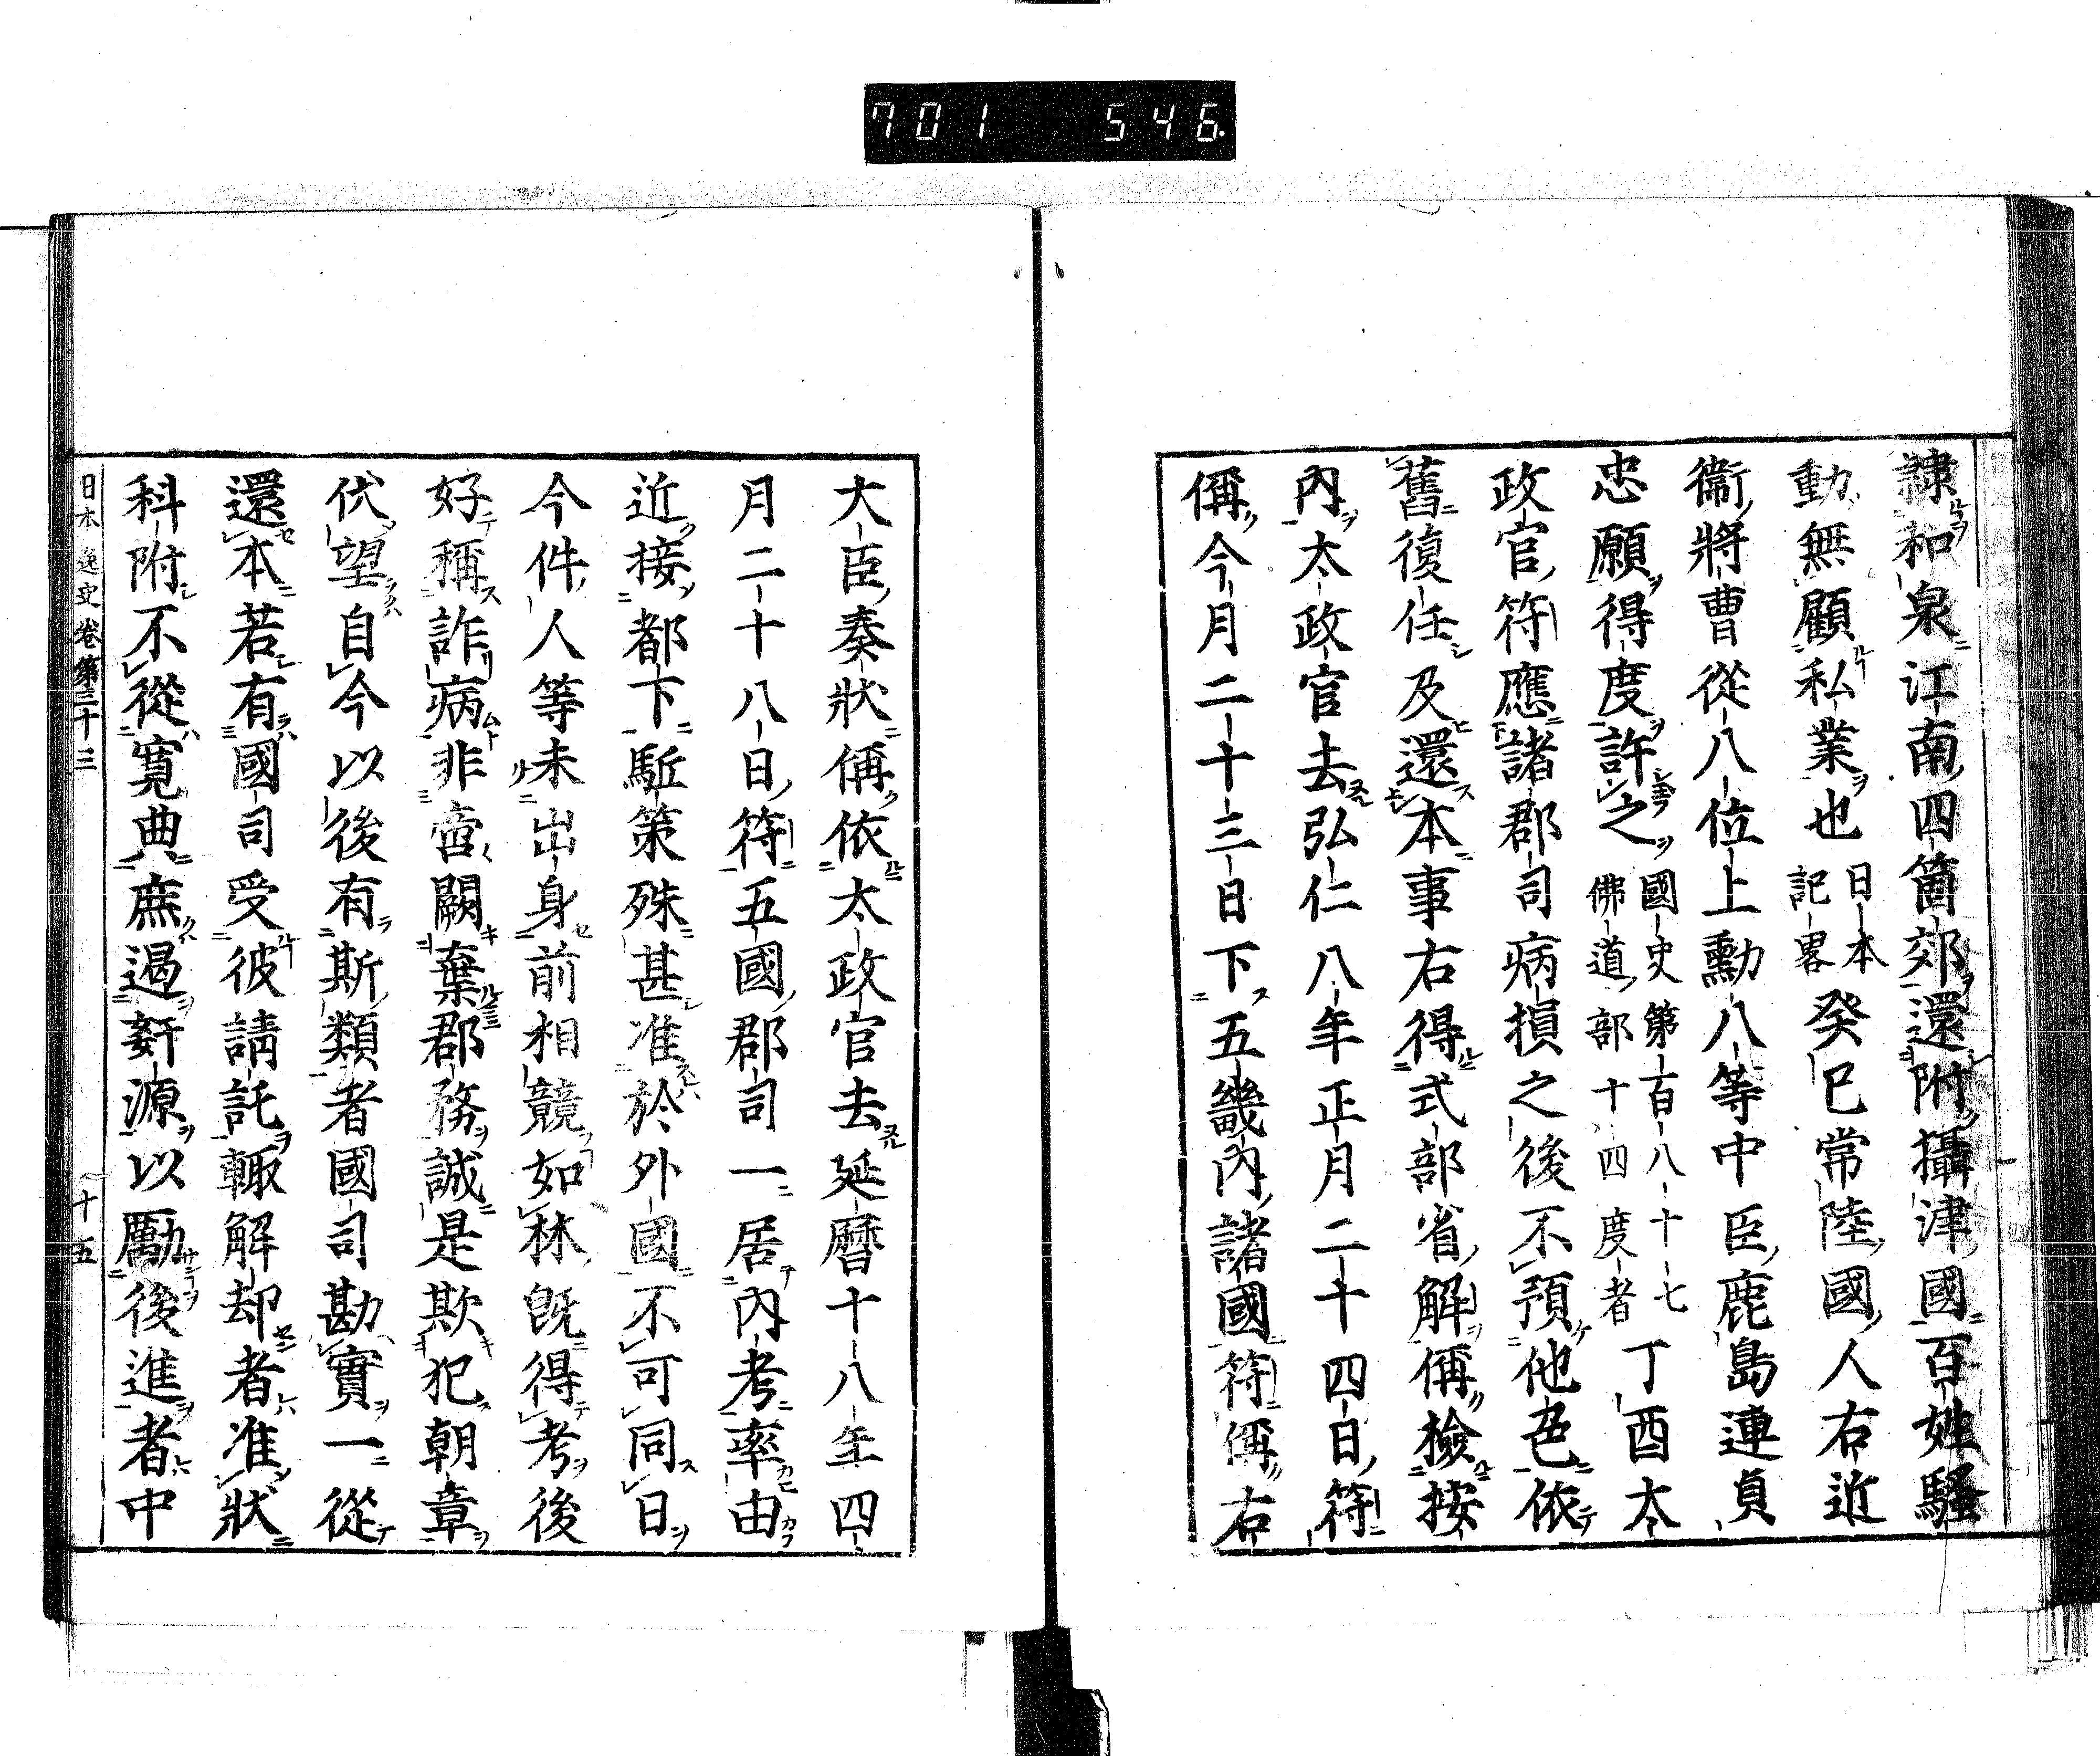 701 546
隷和泉江南四箇郊還附攝津國百姓騷
動無顧私業也日本記畧癸巳常陸國人右近
衞將曹從八位上勳八等中臣鹿島連貞
忠願得度許之國史第百八十七佛道部十四度者丁酉太
政官符應諸郡司病損之後不預他色依
舊復任及還本事右得式部省解偁檢按
內太政官去弘仁八年正月二十四日符
偁今月二十三日下五畿內諸國符偁右
大臣奏狀偁依太政官去延曆十八年四
月二十八日符五國郡司一居內考率由
近接都下駈策殊甚准於外國不可同日
今件人等未出身前相競如林旣得考後
好稱詐病非啻闕棄郡務誠是欺犯朝章
伏望自今以後有斯類者國司勘實一從
還本若有國司受彼請託輙解却者准狀
科附不從寬典庶遏姧源以勵後進者中
日本逸史卷第三十三 十五